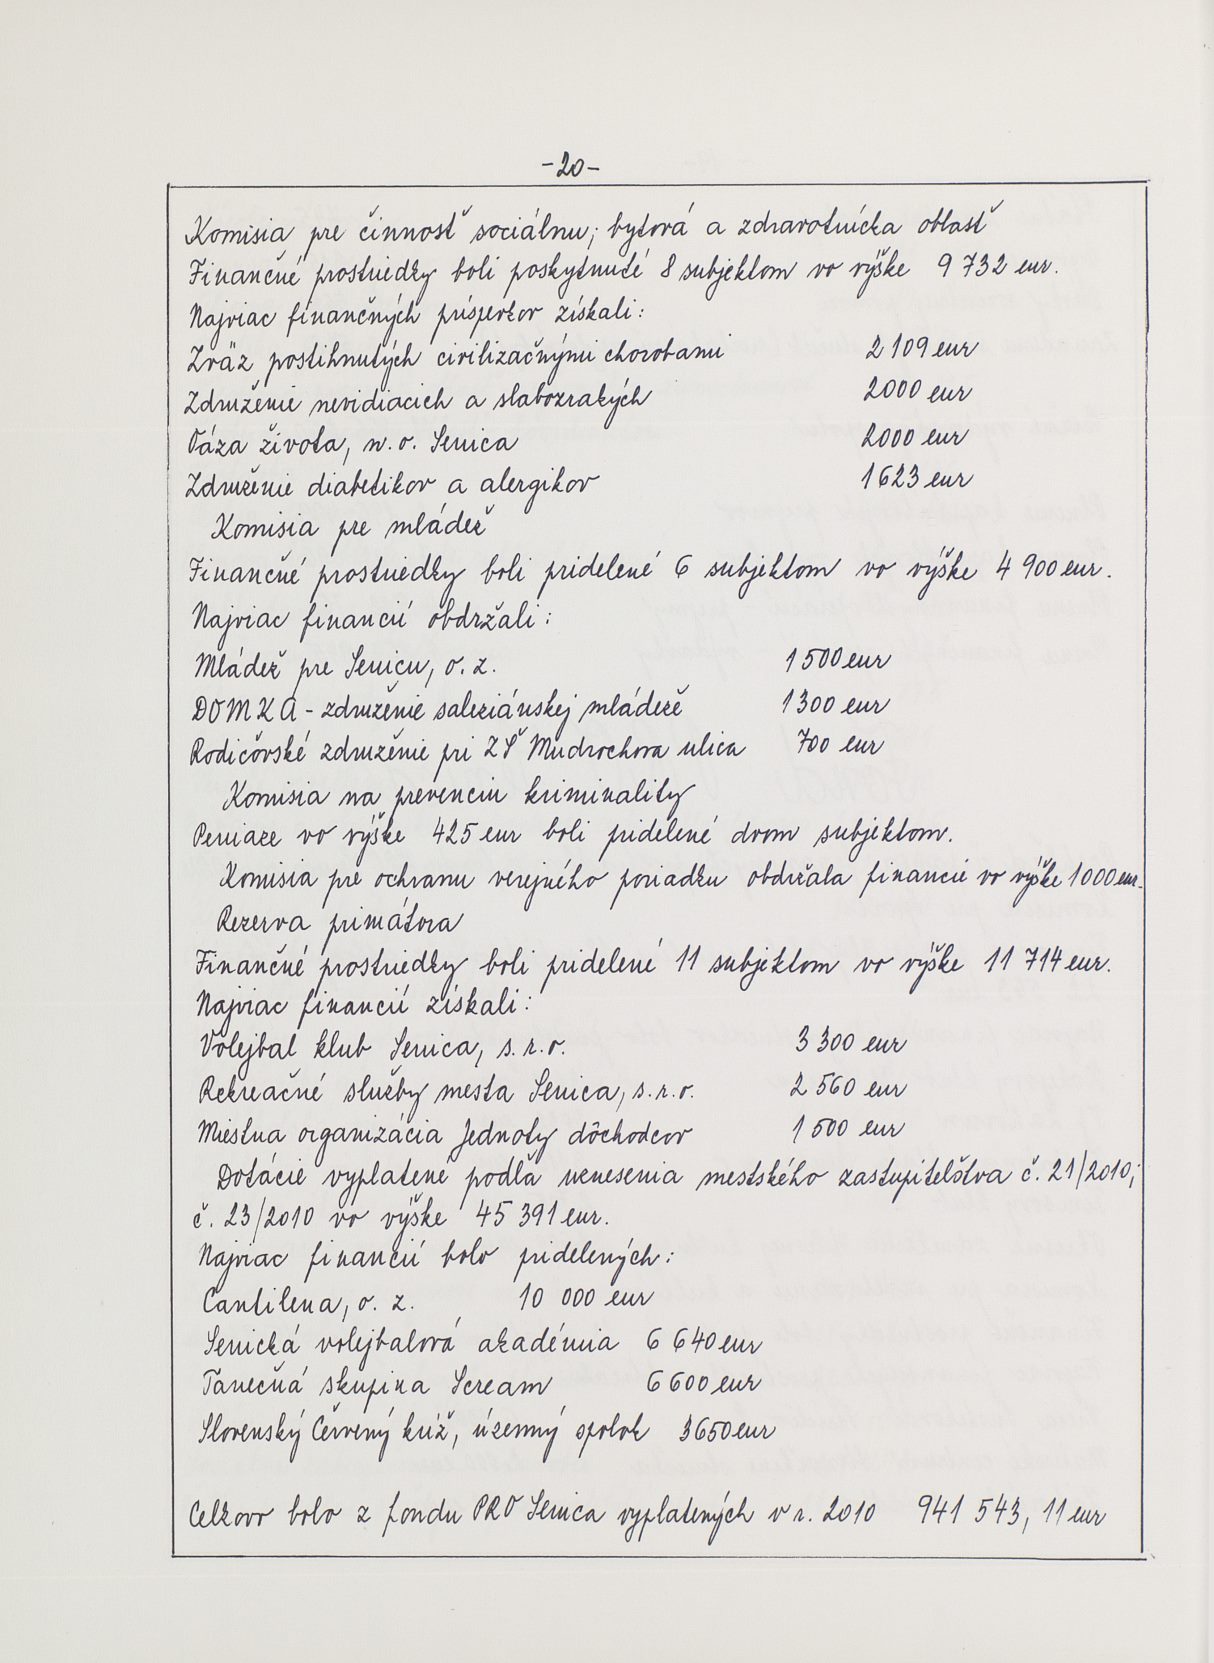 -20-
Komisia pre činnosť sociálnu, bytová a zdravotnícka oblasť
Finančné prostriedky boli poskytnuté 8 subjektom vo výške 9 732 eur.
Najviac finančných príspevkov získali:
Zväz postihnutých civilizačnými chorobami 2 109 eur
Združenie nevidiacich a slabozrakých 2000 eur
Oáza života, n. o. Senica 2000 eur
Združenie diabetikov a alergikov 1 623 eur
Komisia pre mládež
Finančné prostriedky boli pridelené 6 subjektom vo výške 4 900 eur.
Najviac financií obdržali:
Mládež pre Senicu, o. z. 1 500 eur
DOMKA - združenie saleziánskej mládeže 1 300 eur
Rodičovské združenie pri ZŠ Mudrochova ulica 700 eur
Komisia na prevenciu kriminality
Peniaze vo výške 425 eur boli pridelené dvom subjektom.
Komisia pre ochranu verejného poriadku obdržala financie vo výške 1000 eur.
Rezerva primátora
Finančné prostriedky boli pridelené 11 subjektom vo výške 11 714 eur.
Najviac financií získali:
Volejbal klub Senica, s. r. o. 3 300 eur
Rekreačné služby mesta Senica, s. r. o. 2 560 eur
Miestna organizácia Jednoty dôchodcov 1 500 eur
Dotácie vyplatené podľa uznesenia mestského zastupiteľstva č. 21/2010,
č. 23/2010 vo výške 45 391 eur.
Najviac financií bolo pridelených:
Cantilena, o. z. 10 000 eur
Senická volejbalová akadémia 6 640 eur
Tanečná skupina Scream 6 600 eur
Slovenský Červený kríž, územný spolok 3650 eur
Celkovo bolo z fondu PRO Senica vyplatených v r. 2010 941 543, 11 eur